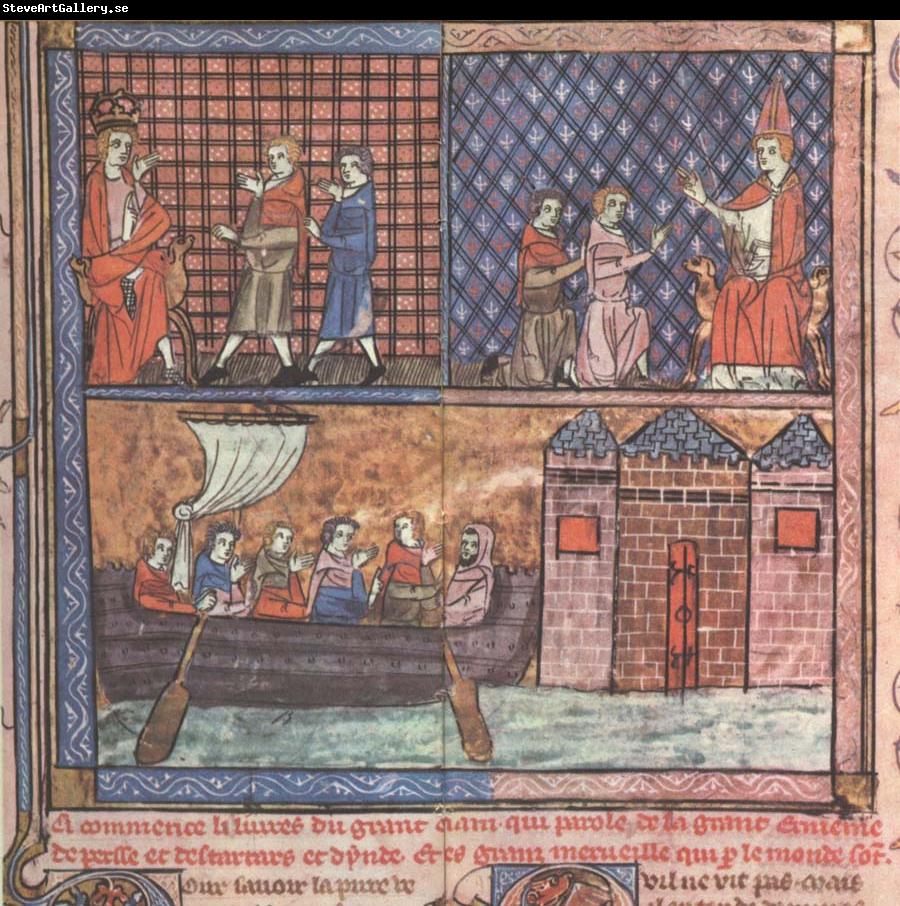 SteveArtGallery.se
Ci commence li liures du graunt Caam qui parole de la graunt Ermenie
de persse et des tartars et dynde. Et des granz merueille qui p le monde sõt.
Our sauoir la pure v
vil ne vit pas. Mais